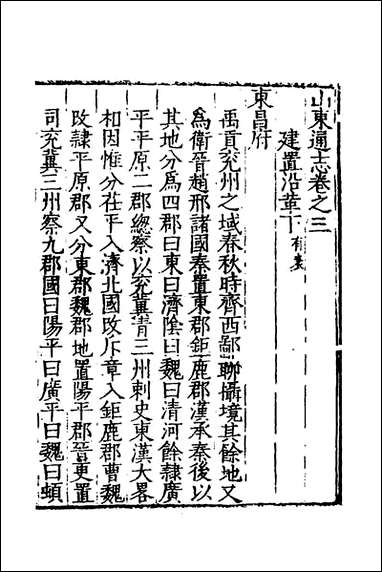 山東通志卷之三
建置沿革下
東昌府
禹貢兖州之域春秋時齊西鄙聊攝境其餘地又
爲衛晉趙邢諸國秦置東郡鉅鹿郡漢承秦後以
其地分爲四郡曰東曰濟陰曰魏曰清河餘隷廣
平平原二郡總察以兖冀青三州刺史東漢大畧
相因惟分茌平入濟北國改斥章入鉅鹿郡曹魏
改隷平原郡又分東郡魏郡地置陽平郡晉更置
司兖冀三州察九郡國曰陽平曰廣平曰魏曰頓